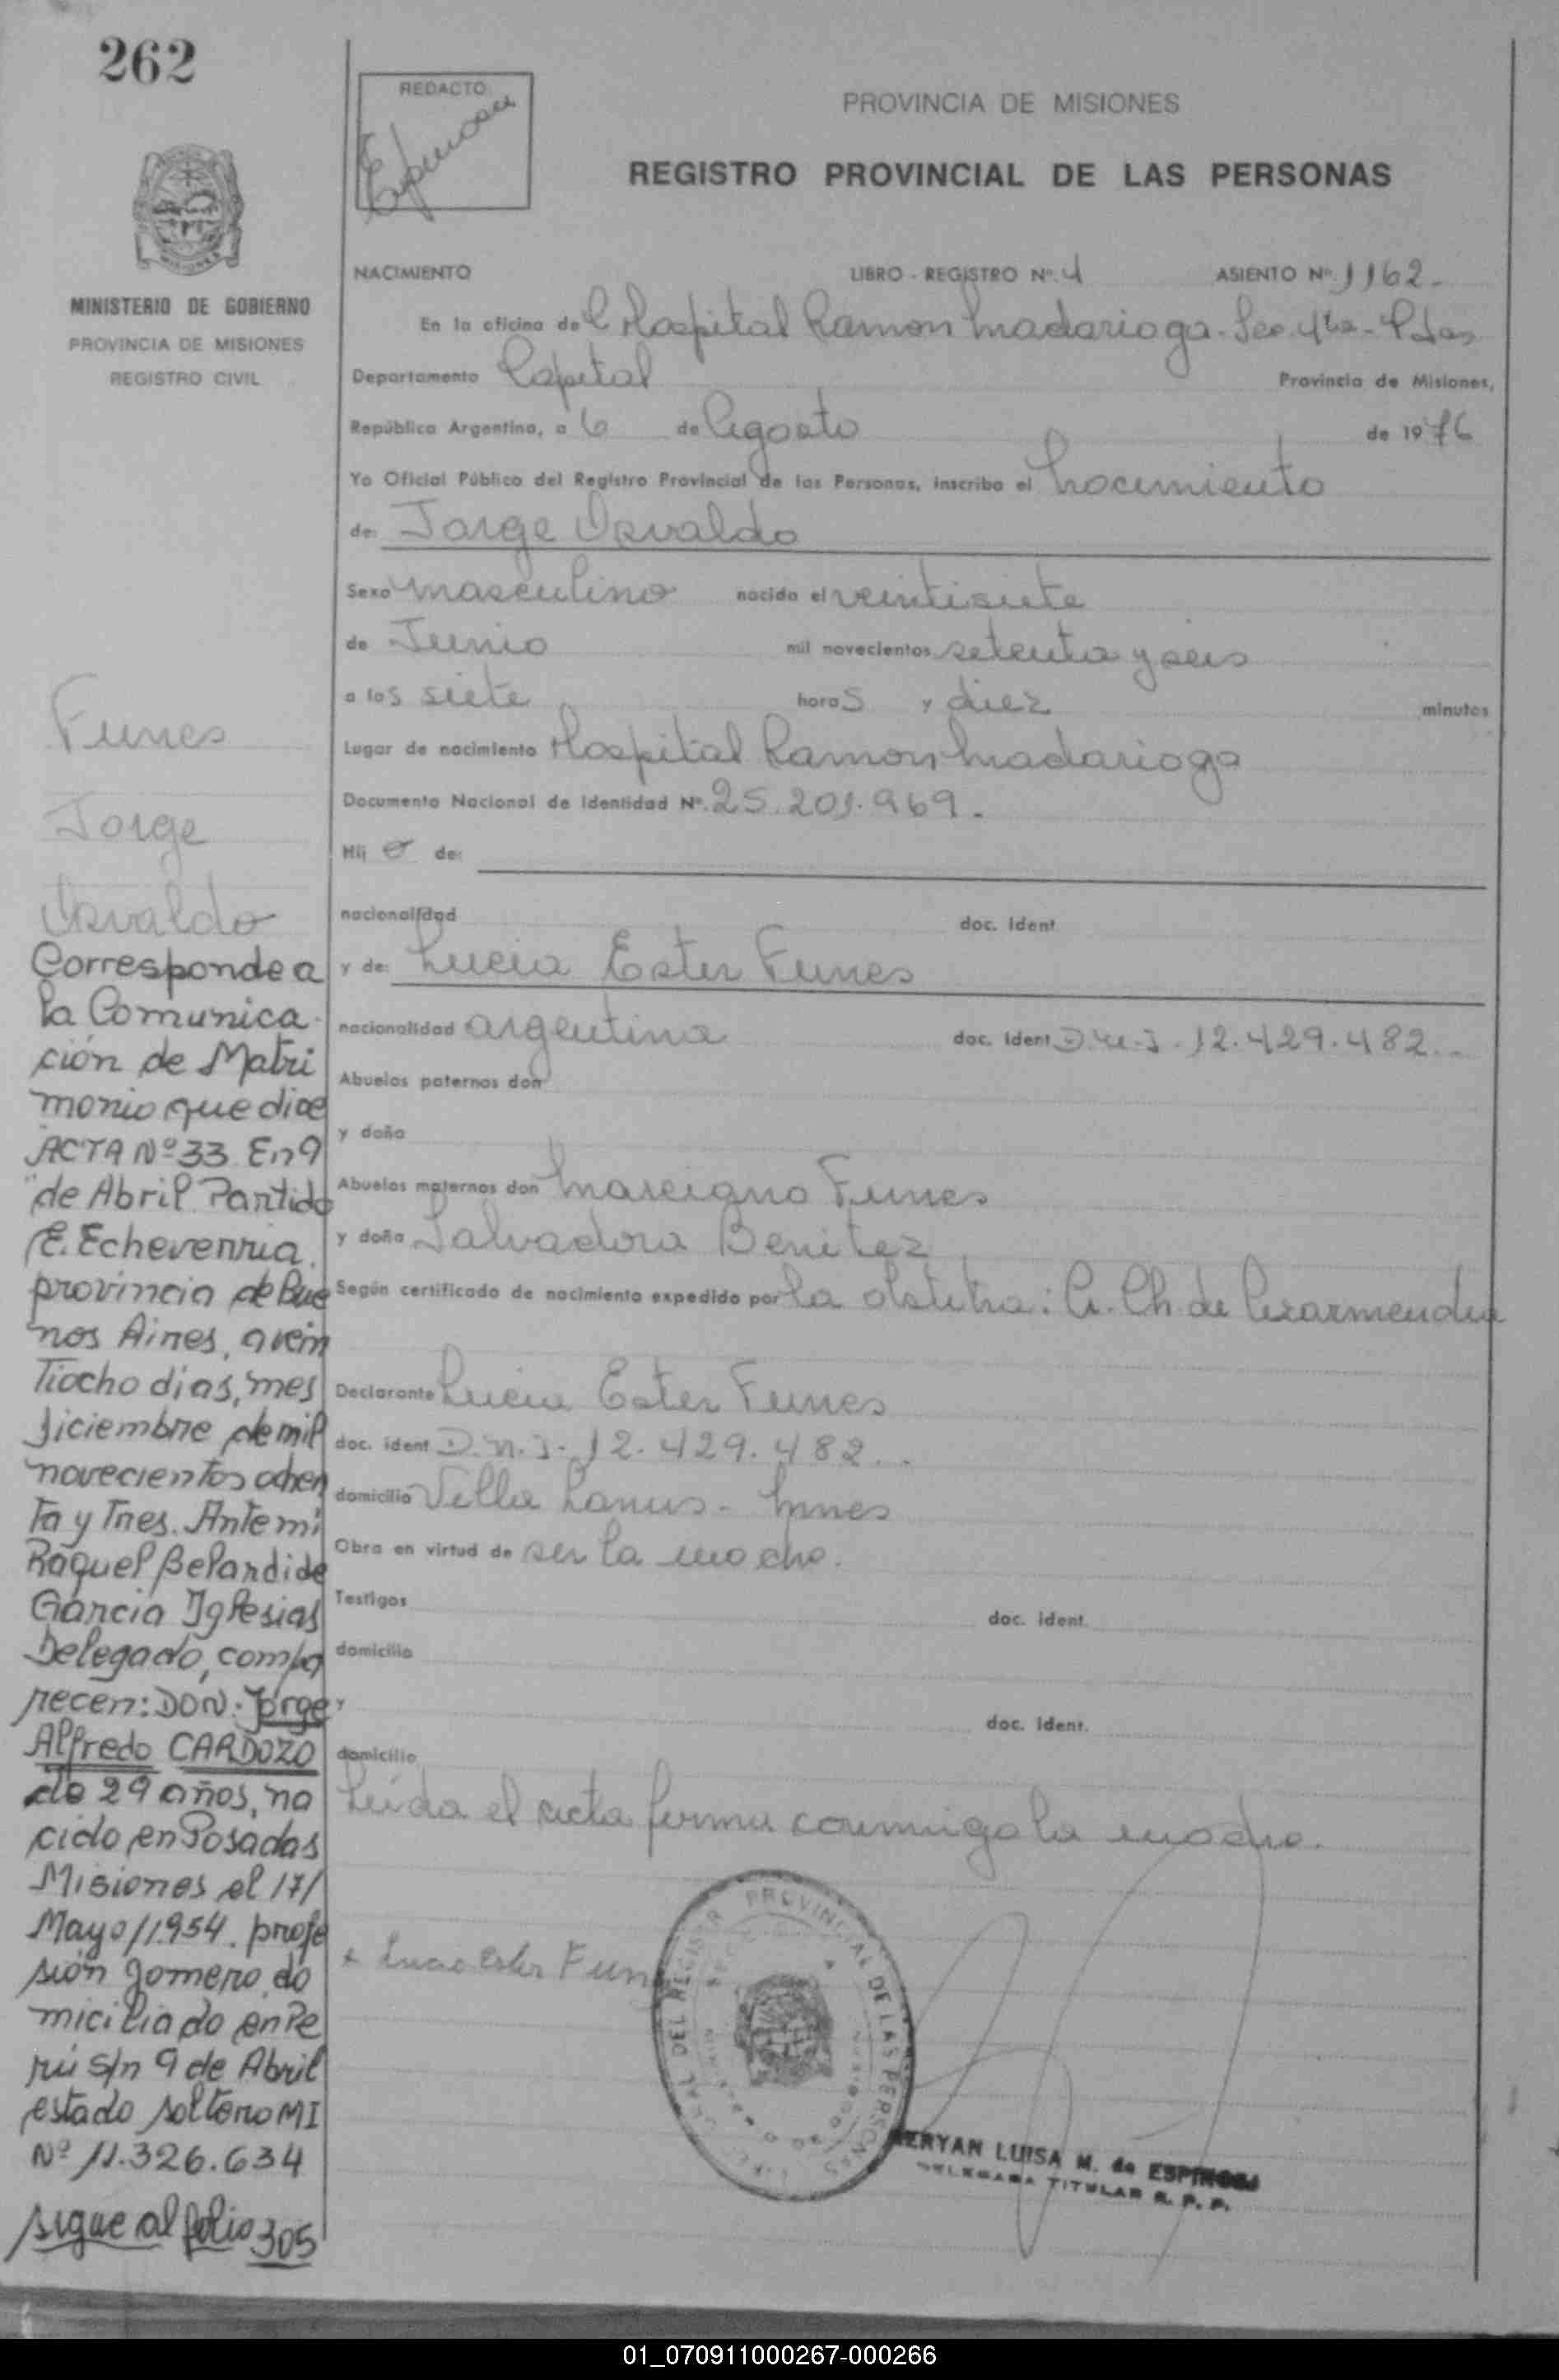 262
REDACTO:
Espinosa
PROVINCIA DE MISIONES
REGISTRO PROVINCIAL DE LAS PERSONAS
MISIONES
MINISTERIO DE GOBIERNO
PROVINCIA DE MISIONES
REGISTRO CIVIL
NACIMIENTO LIBRO - REGISTRO Nº. 4 ASIENTO Nº. 1162.-
En la oficina de Hospital Ramon Madariaga - Sec. 4ta - Pdas
Departamento Capital Provincia de Misiones,
República Argentina, a 6 de Agosto de 1976
Yo Oficial Público del Registro Provincial de las Personas, inscribo el Nacimiento
de: Jorge Osvaldo
Sexo masculino nacido el veintisiete
de Junio mil novecientos setenta y seis
a las siete horas y diez minutos
Lugar de nacimiento Hospital Ramon Madariaga
Documento Nacional de Identidad Nº. 25.201.969.-
Hijo de:
nacionalidad doc. ident
y de: Lucia Ester Funes
nacionalidad argentina doc. ident D.N.I. 12.429.482.-
Abuelos paternos don
y doña
Abuelos maternos don Marciano Funes
y doña Salvadora Benitez
Según certificado de nacimiento expedido por la obstetra: A. Ch. de
Declarante Lucia Ester Funes
doc. ident D.N.I. 12.429.482.-
domicilio Villa Lanus - Mnes
Obra en virtud de ser la madre.
Testigos doc. ident.
domicilio
y doc. ident.
domicilio
Leída el acta firma conmigo la madre.
Lucia Ester Fun
REGISTRO PROVINCIAL DE LAS PERSONAS
MERYAN LUISA M. de ESPINOSA
DELEGADA TITULAR R. P. P.
Funes
Jorge
Osvaldo
Corresponde a
la Comunica-
ción de Matri
monio que dice
ACTA Nº 33 En 9
de Abril Partido
E. Echeverria.
provincia de Bue
nos Aires, a vein
Tiocho dias, mes
diciembre de mil
novecientos ochen
Ta y Tres. Ante mi
Raquel Belardi de
Garcia Iglesias
Delegado, compa
recen: DON. Jorge
Alfredo CARDOZO
de 29 años, na
cido en Posadas
Misiones el 17/
Mayo/1.954. profe
sión gomero, do
miciliado en Pe
rú s/n 9 de Abril
estado soltero MI
Nº 11.326.634
sigue al folio 305
01_070911000267-000266